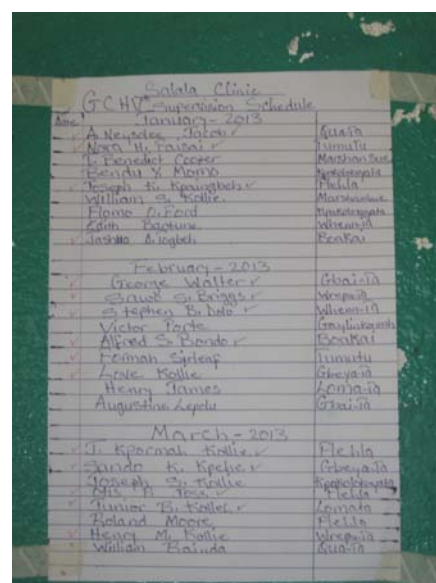 Salala Clinic
GCHV Supervision Schedule
January - 2013
A. Neysdee Jacob Qua-Ta
Nora H. Faisai Tumutu
T. Benedict Cooper Marshansue
Bendu Y. Momo
Joseph K. Flehla
William S. Kollie Marshansue
Flomo O. Ford
Edith Wheen-Ta
Jashwo Bonkai
February - 2013
George Walter Gbai-Ta
Sawo S. Briggs Wrepu-Ta
Stephen B. Dolo Wheen-Ta
Victor
Alfred S. Bondo Bonkai
Formah Sirleaf Tumutu
Love Kollie Gbeya-Ta
Henry James Loma-Ta
Augustine Lepolu Gbai-Ta
March - 2013
J. Kpormah Kollie Flehla
Sando K. Kpehe Gbeya-Ta
Joseph S. Kollie
Mis. P. Toss Flehla
Junior B. Kollie Lomata
Roland Moore Flehla
Henry M. Kollie Wrepu-Ta
William Qua-Ta